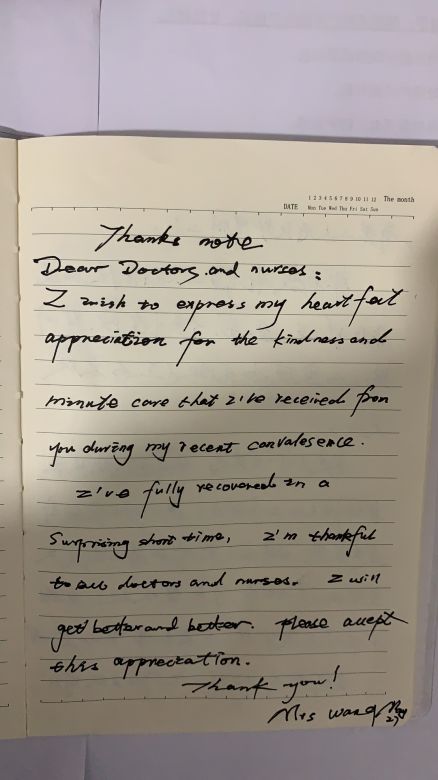 1 2 3 4 5 6 7 8 9 10 11 12 The month
DATE Mon Tue Wed Thu Fri Sat Sun
Thanks note
Dear Doctors and nurses:
I wish to express my heart felt
appreciation for the kindness and
minute care that I've received from
you during my recent convalesence.
I've fully recovered in a
surprising short time, I'm thankful
to all doctors and nurses. I will
get better and better. please accept
this appreciation.
Thank you!
Mrs Wang May
27